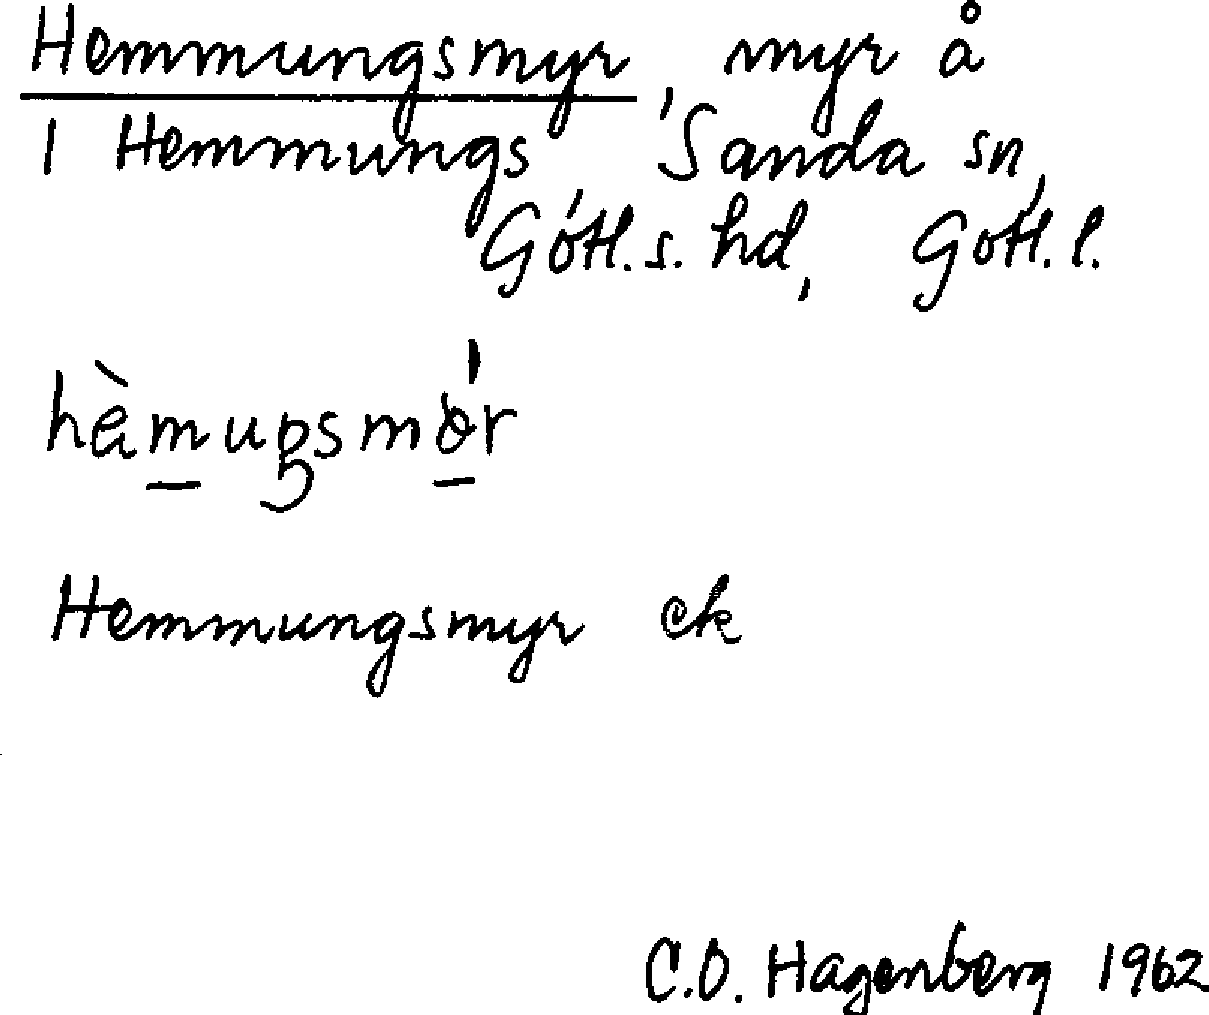 Hemmungsmyr, myr å
1 Hemmungs, Sanda sn,
Gotl. s. hd, Gotl. l.
hèmuŋsmǿr
Hemmungsmyr ek
C.O. Hagenberg 1962